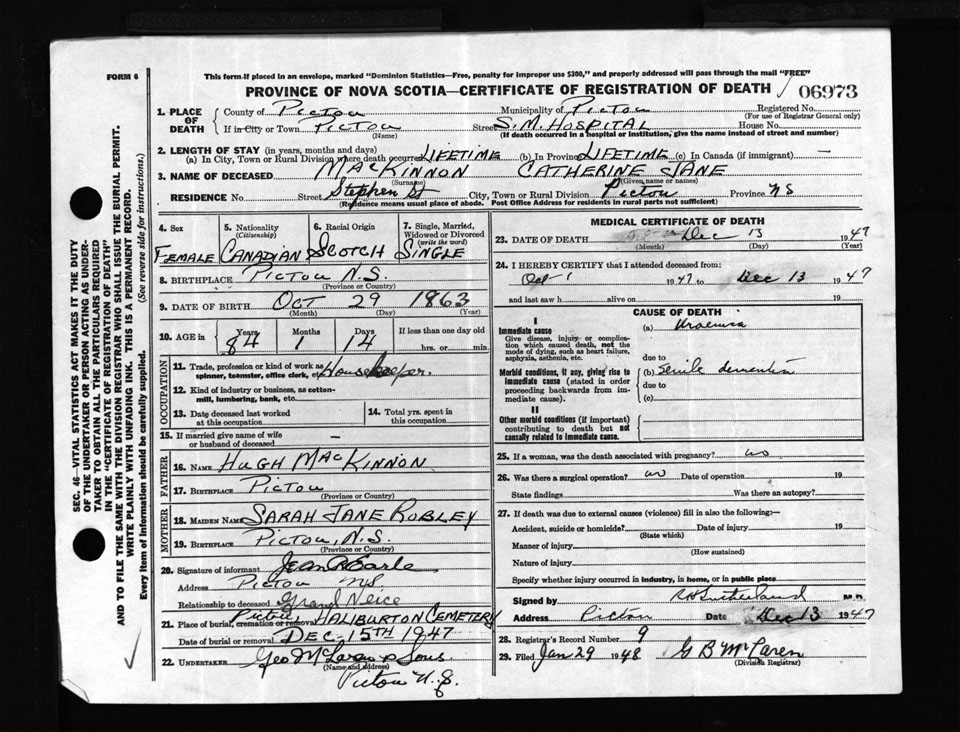 FORM 6
This form if placed in an envelope, marked "Dominion Statistics—Free, penalty for improper use $300," and properly addressed will pass through the mail "FREE"
PROVINCE OF NOVA SCOTIA—CERTIFICATE OF REGISTRATION OF DEATH / 06973
SEC. 46—VITAL STATISTICS ACT MAKES IT THE DUTY
OF THE UNDERTAKER OR PERSON ACTING AS UNDER-
TAKER TO OBTAIN ALL THE PARTICULARS REQUIRED
IN THE "CERTIFICATE OF REGISTRATION OF DEATH"
AND TO FILE THE SAME WITH THE DIVISION REGISTRAR WHO SHALL ISSUE THE BURIAL PERMIT.
WRITE PLAINLY WITH UNFADING INK. THIS IS A PERMANENT RECORD.
Every item of information should be carefully supplied. (See reverse side for instructions.)
1. PLACE OF DEATH
County of Pictou Municipality of Pictou Registered No.
(For use of Registrar General only)
If in City or Town Pictou Street S.M. HOSPITAL House No.
(Name) (If death occurred in a hospital or institution, give the name instead of street and number)
2. LENGTH OF STAY (in years, months and days)
(a) In City, Town or Rural Division where death occurred LIFETIME (b) In Province LIFETIME (c) In Canada (if immigrant) —
3. NAME OF DECEASED MACKINNON CATHERINE JANE
(Surname) (Given name or names)
RESIDENCE No. Street Stephen St City, Town or Rural Division Pictou Province NS
(Residence means usual place of abode. Post Office Address for residents in rural parts not sufficient)
4. Sex 5. Nationality (Citizenship) 6. Racial Origin 7. Single, Married, Widowed or Divorced (write the word)
FEMALE CANADIAN SCOTCH SINGLE
8. BIRTHPLACE PICTOU N.S.
(Province or Country)
9. DATE OF BIRTH OCT 29 1863
(Month) (Day) (Year)
10. AGE in Years Months Days If less than one day old
84 1 14 hrs. or min.
OCCUPATION
11. Trade, profession or kind of work as spinner, teamster, office clerk, etc. Housekeeper.
12. Kind of industry or business, as cotton-mill, lumbering, bank, etc.
13. Date deceased last worked at this occupation 14. Total yrs. spent in this occupation
15. If married give name of wife or husband of deceased —
FATHER
16. NAME HUGH MACKINNON
17. BIRTHPLACE PICTOU
(Province or Country)
MOTHER
18. MAIDEN NAME SARAH JANE ROBLEY
19. BIRTHPLACE PICTOU, N.S.
(Province or Country)
20. Signature of informant Jean R Earle
Address Pictou NS.
Relationship to deceased Grand Neice
21. Place of burial, cremation or removal HALIBURTON CEMETERY
Date of burial or removal DEC. 15TH 1947
22. UNDERTAKER Geo McLaren & Sons.
(Name and address)
Pictou N.S.
MEDICAL CERTIFICATE OF DEATH
23. DATE OF DEATH Dec 13 1947
(Month) (Day) (Year)
24. I HEREBY CERTIFY that I attended deceased from:
Oct 1 1947 to Dec 13 1947
and last saw h alive on 19
CAUSE OF DEATH
I
Immediate cause
Give disease, injury or complication which caused death, not the mode of dying, such as heart failure, asphyxia, asthenia, etc.
(a) Uraemia
due to
Morbid conditions, if any, giving rise to immediate cause (stated in order proceeding backwards from immediate cause).
(b) Senile dementia
due to
(c)
II
Other morbid conditions (if important) contributing to death but not causally related to immediate cause.
25. If a woman, was the death associated with pregnancy? no
26. Was there a surgical operation? no Date of operation 19
State findings Was there an autopsy?
27. If death was due to external causes (violence) fill in also the following:—
Accident, suicide or homicide? Date of injury 19
(State which)
Manner of injury
(How sustained)
Nature of injury
Specify whether injury occurred in industry, in home, or in public place
Signed by RH Sutherland M.D.
Address Pictou Date Dec 13 1947
28. Registrar's Record Number 9
29. Filed Jan 29 1948 G B McLaren
(Division Registrar)